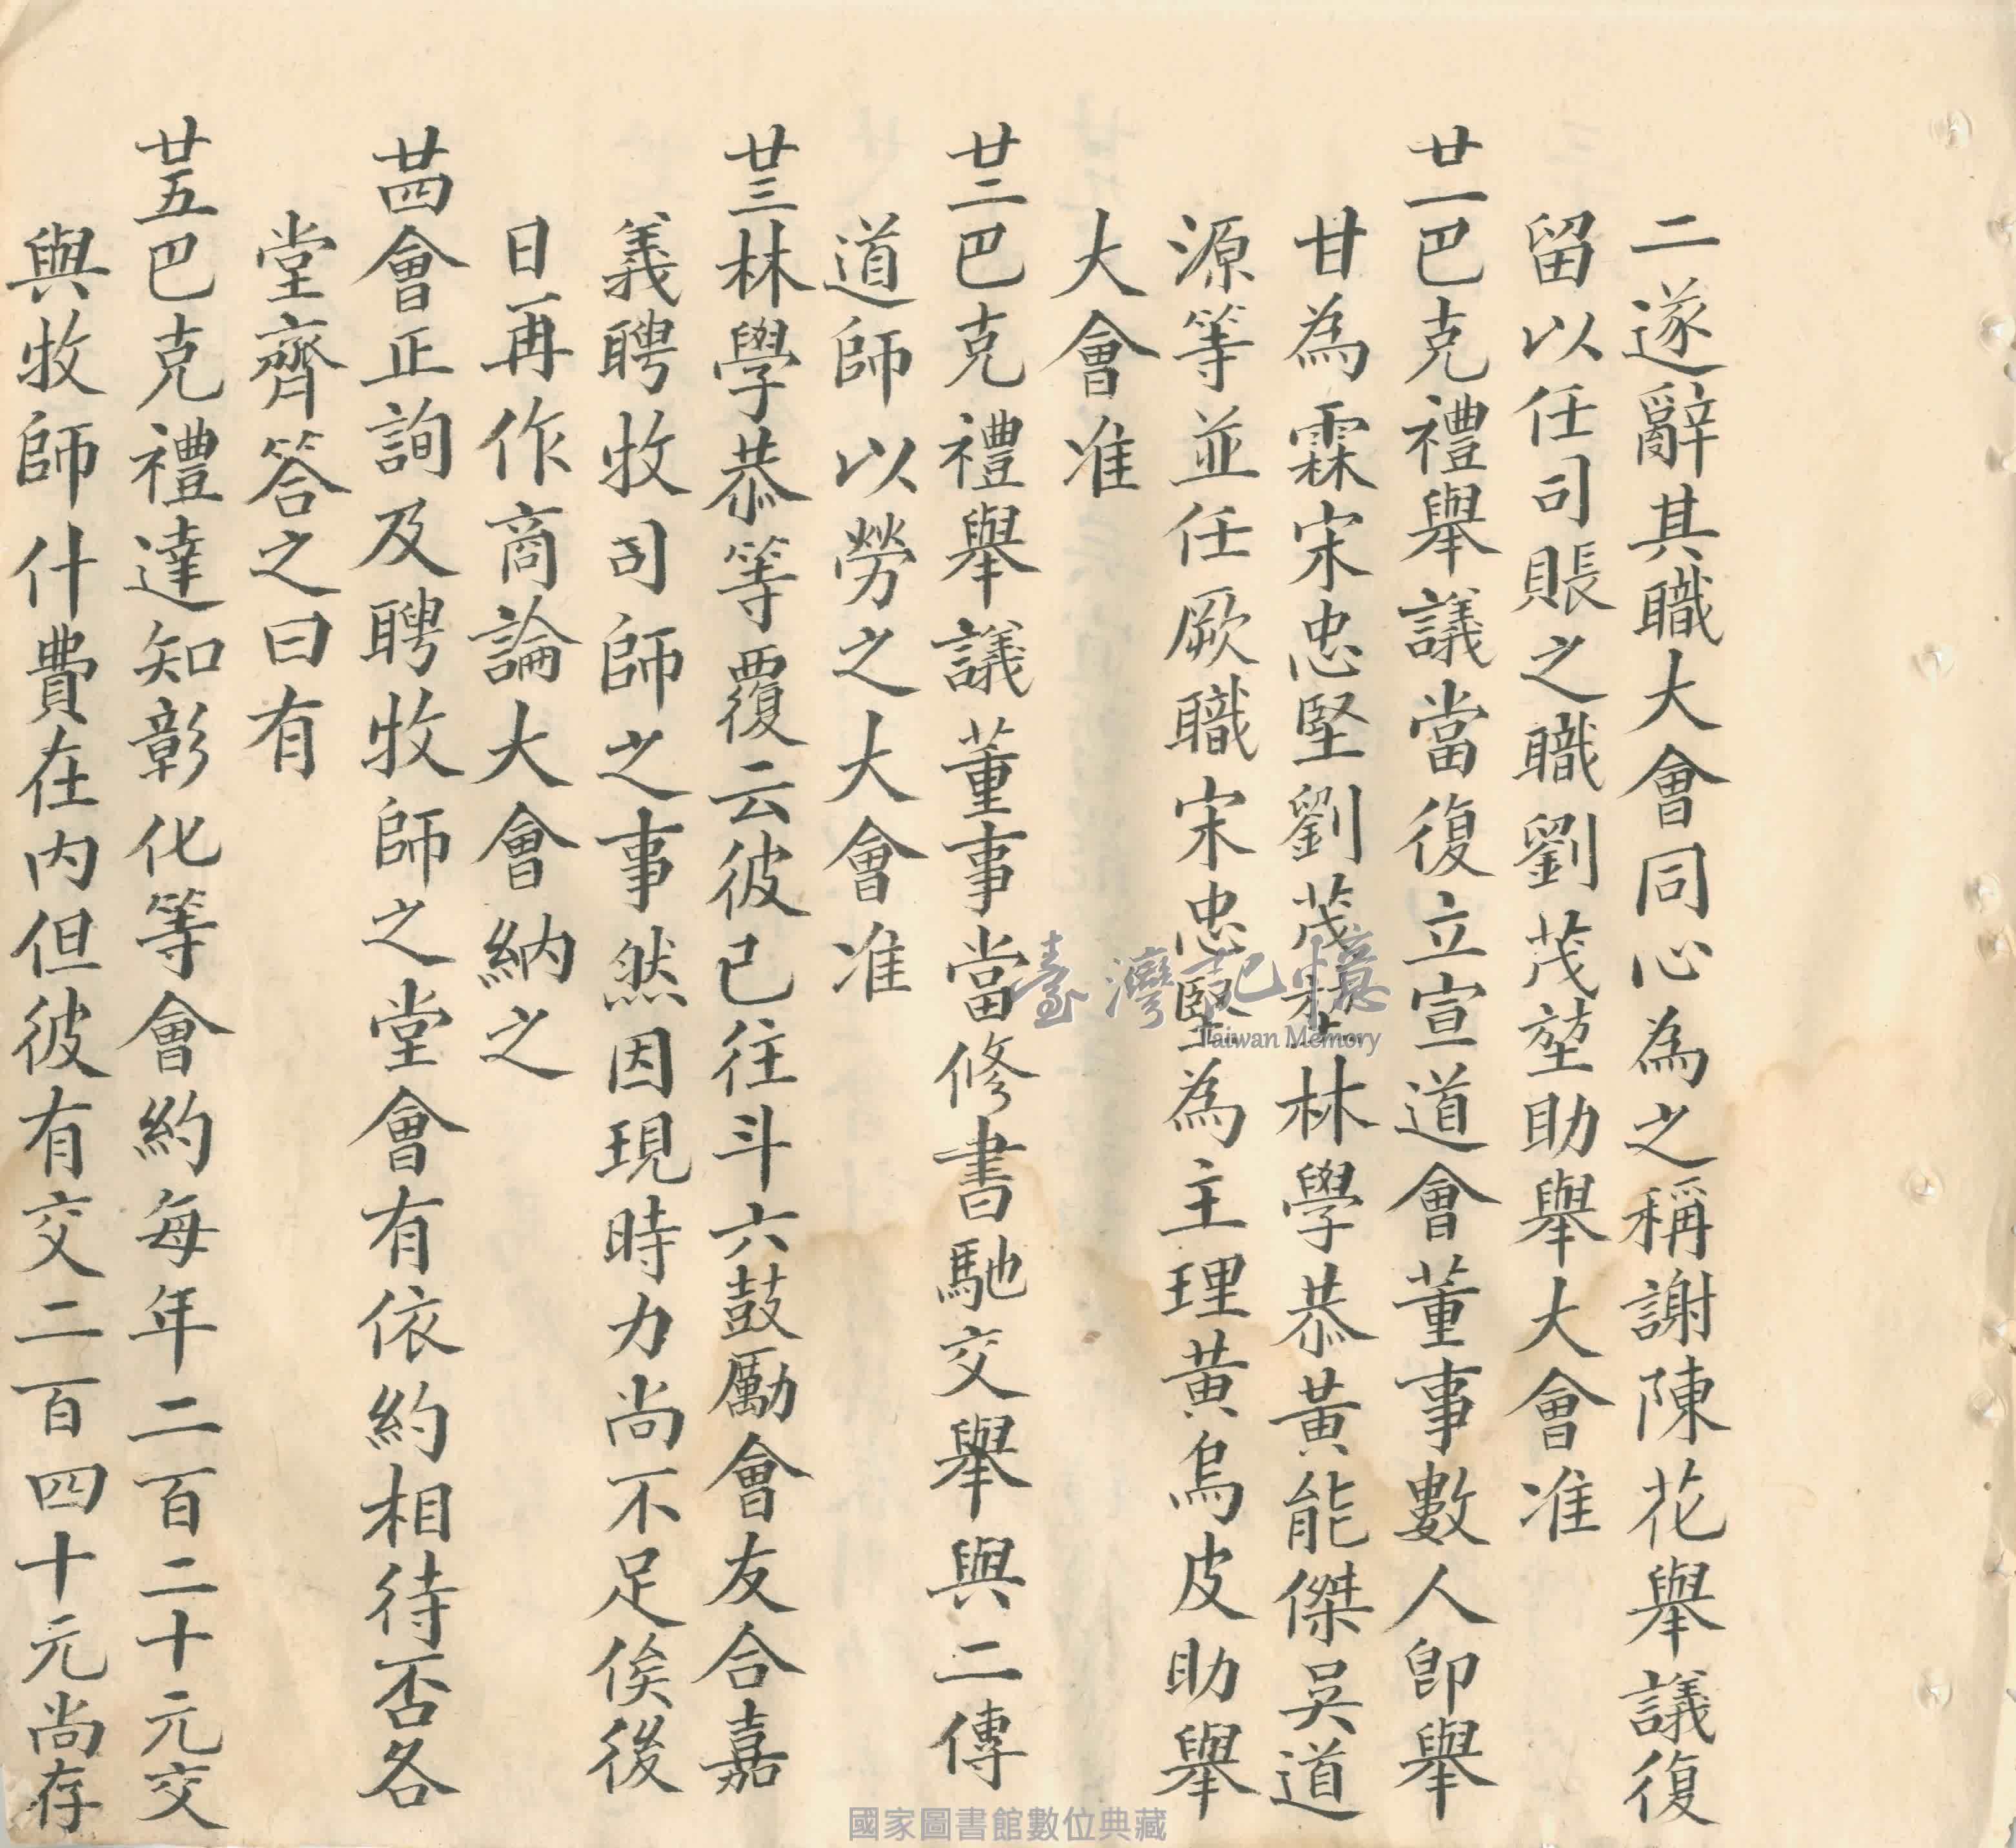 二遂辭其職大會同心為之稱謝陳花舉議復
留以任司賬之職劉茂堃助舉大會准
廿一巴克禮舉議當復立宣道會董事數人即舉
甘為霖宋忠堅劉茂堃林學恭黃能傑吳道
源等並任厥職宋忠堅為主理黃烏皮助舉
大會准
廿二巴克禮舉議董事當修書馳交舉與二傳
道師以勞之大會准
廿三林學恭等覆云彼已往斗六鼓勵會友合嘉
義聘牧司師之事然因現時力尚不足俟後
日再作商論大會納之
廿四會正詢及聘牧師之堂會有依約相待否各
堂齊答之曰有
廿五巴克禮達知彰化等會約每年二百二十元交
與牧師什費在內但彼有交二百四十元尚存
臺灣記憶
Taiwan Memory
國家圖書館數位典藏